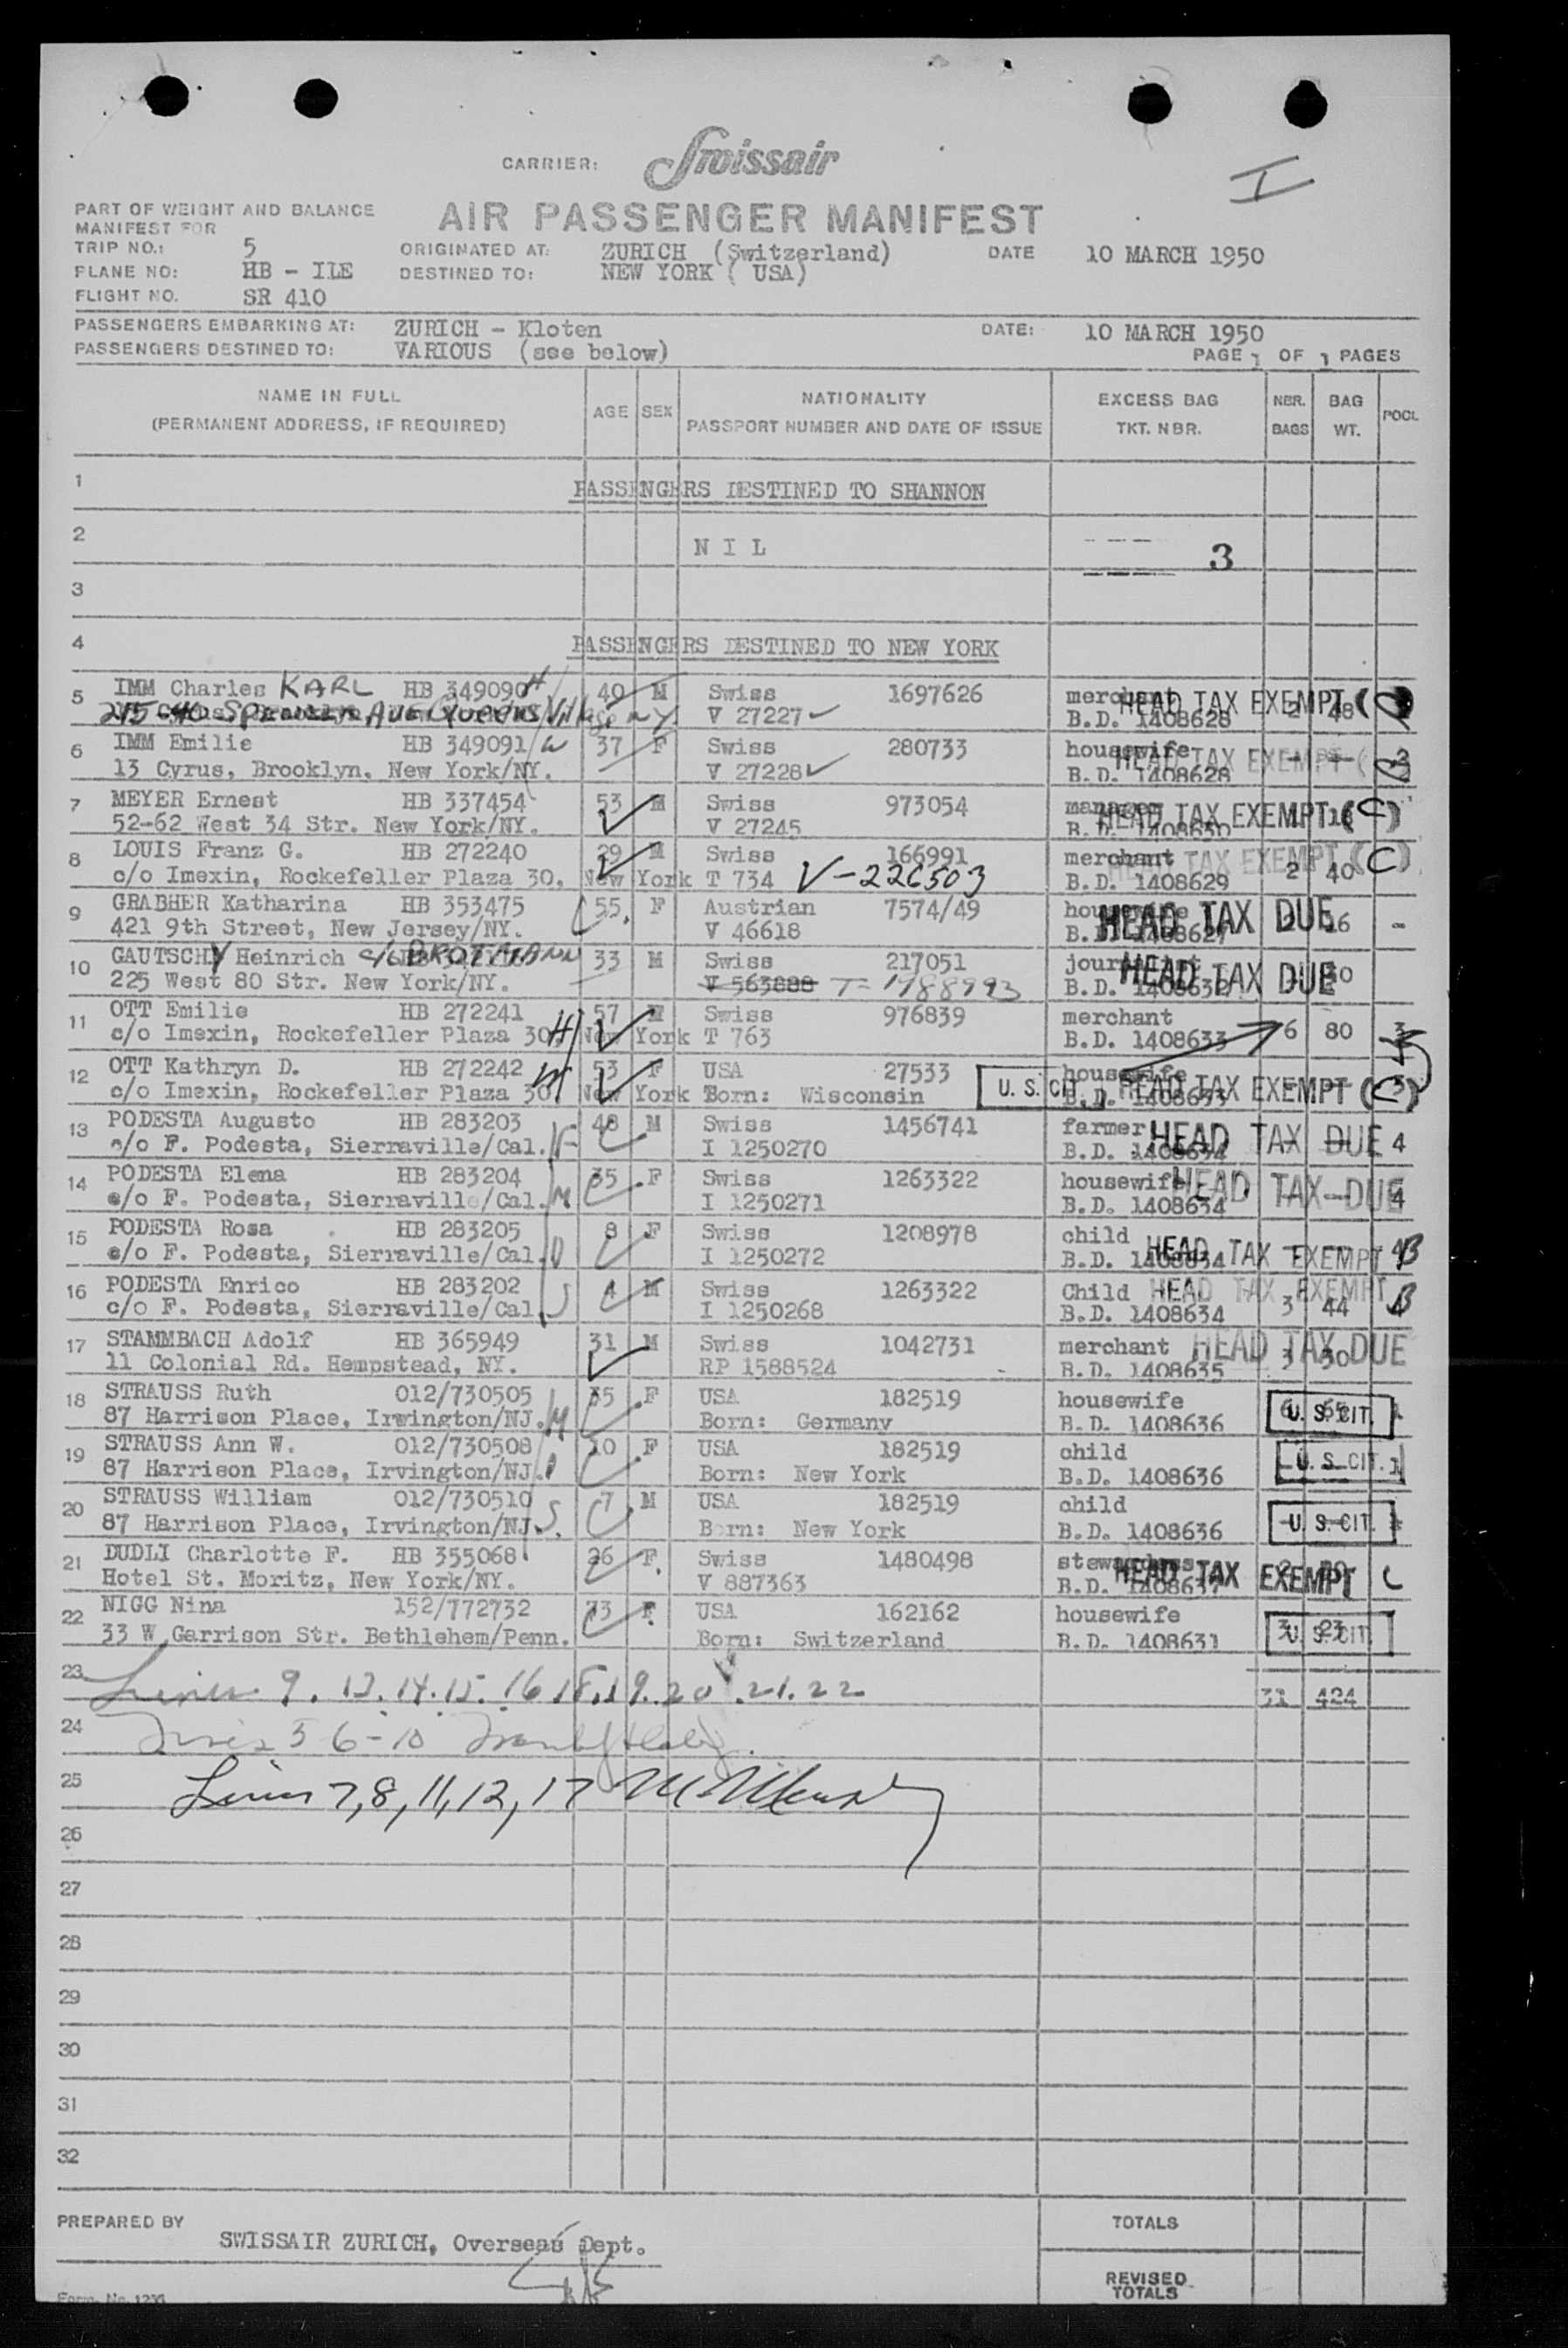 CARRIER: Swissair
I
PART OF WEIGHT AND BALANCE
MANIFEST FOR
AIR PASSENGER MANIFEST
TRIP NO.: 5 ORIGINATED AT: ZURICH (Switzerland) DATE 10 MARCH 1950
PLANE NO: HB - ILE DESTINED TO: NEW YORK ( USA)
FLIGHT NO. SR 410
PASSENGERS EMBARKING AT: ZURICH - Kloten DATE: 10 MARCH 1950
PASSENGERS DESTINED TO: VARIOUS (see below) PAGE 1 OF 1 PAGES
NAME IN FULL AGE SEX NATIONALITY EXCESS BAG NBR. BAG POOL
(PERMANENT ADDRESS, IF REQUIRED) PASSPORT NUMBER AND DATE OF ISSUE TKT. NBR. BAGS WT.
1 PASSENGERS DESTINED TO SHANNON
2 N I L 3
3
4 PASSENGERS DESTINED TO NEW YORK
5 IMM Charles KARL HB 349090 H 40 M Swiss 1697626 merchant HEAD TAX EXEMPT
215-40 SPENCER AVE QUEENS Village NY V 27227 B.D. 1408628 2 48
6 IMM Emilie HB 349091 W 37 F Swiss 280733 housewife HEAD TAX EXEMPT
13 Cyrus, Brooklyn, New York/NY. V 27228 B.D. 1408628 3
7 MEYER Ernest HB 337454 53 M Swiss 973054 manager HEAD TAX EXEMPT (C)
52-62 West 34 Str. New York/NY. V 27245 B.D. 1408630
8 LOUIS Franz G. HB 272240 29 M Swiss 166991 merchant HEAD TAX EXEMPT (C)
c/o Imexin, Rockefeller Plaza 30, New York T 734 V-226503 B.D. 1408629 2 40
9 GRABHER Katharina HB 353475 55 F Austrian 7574/49 housewife HEAD TAX DUE
421 9th Street, New Jersey/NY. V 46618 B.D. 1408627 16 -
10 GAUTSCHY Heinrich c/o BROTMANN 33 M Swiss 217051 journalist HEAD TAX DUE
225 West 80 Str. New York/NY. V 563888 T-1488993 B.D. 1408632
11 OTT Emilie HB 272241 57 M Swiss 976839 merchant
c/o Imexin, Rockefeller Plaza 30 H New York T 763 B.D. 1408633 6 80 3
12 OTT Kathryn D. HB 272242 53 F USA 27533 U. S. CIT. housewife HEAD TAX EXEMPT (C)
c/o Imexin, Rockefeller Plaza 30 W New York Born: Wisconsin B.D. 1408633
13 PODESTA Augusto HB 283203 48 M Swiss 1456741 farmer HEAD TAX DUE 4
c/o F. Podesta, Sierraville/Cal. F I 1250270 B.D. 1408634
14 PODESTA Elena HB 283204 35 F Swiss 1263322 housewife HEAD TAX DUE
c/o F. Podesta, Sierraville/Cal. M I 1250271 B.D. 1408634 4
15 PODESTA Rosa HB 283205 8 F Swiss 1208978 child HEAD TAX EXEMPT B
c/o F. Podesta, Sierraville/Cal. D I 1250272 B.D. 1408634
16 PODESTA Enrico HB 283202 4 M Swiss 1263322 Child HEAD TAX EXEMPT B
c/o F. Podesta, Sierraville/Cal. S I 1250268 B.D. 1408634 3 44 4
17 STAMMBACH Adolf HB 365949 31 M Swiss 1042731 merchant HEAD TAX DUE
11 Colonial Rd. Hempstead, NY. RP 1588524 B.D. 1408635 3 30
18 STRAUSS Ruth 012/730505 35 F USA 182519 housewife U. S. CIT. 1
87 Harrison Place, Irwington/NJ. M Born: Germany B.D. 1408636
19 STRAUSS Ann W. 012/730508 10 F USA 182519 child U. S. CIT. 1
87 Harrison Place, Irvington/NJ. D Born: New York B.D. 1408636
20 STRAUSS William 012/730510 7 M USA 182519 child U. S. CIT.
87 Harrison Place, Irvington/NJ. S Born: New York B.D. 1408636
21 DUDLI Charlotte F. HB 355068 26 F Swiss 1480498 stewardess HEAD TAX EXEMPT C
Hotel St. Moritz, New York/NY. V 887363 B.D. 1408637
22 NIGG Nina 152/772732 73 F USA 162162 housewife U. S. CIT.
33 W Garrison Str. Bethlehem/Penn. Born: Switzerland B.D. 1408631 3 23
23 Lines 9. 13.14.15. 16.18.19.20.21.22 31 424
24 Lines 5 6-10
25 Lines 7,8,11,12,17
26
27
28
29
30
31
32
PREPARED BY SWISSAIR ZURICH, Overseas Dept. TOTALS
REVISED
TOTALS